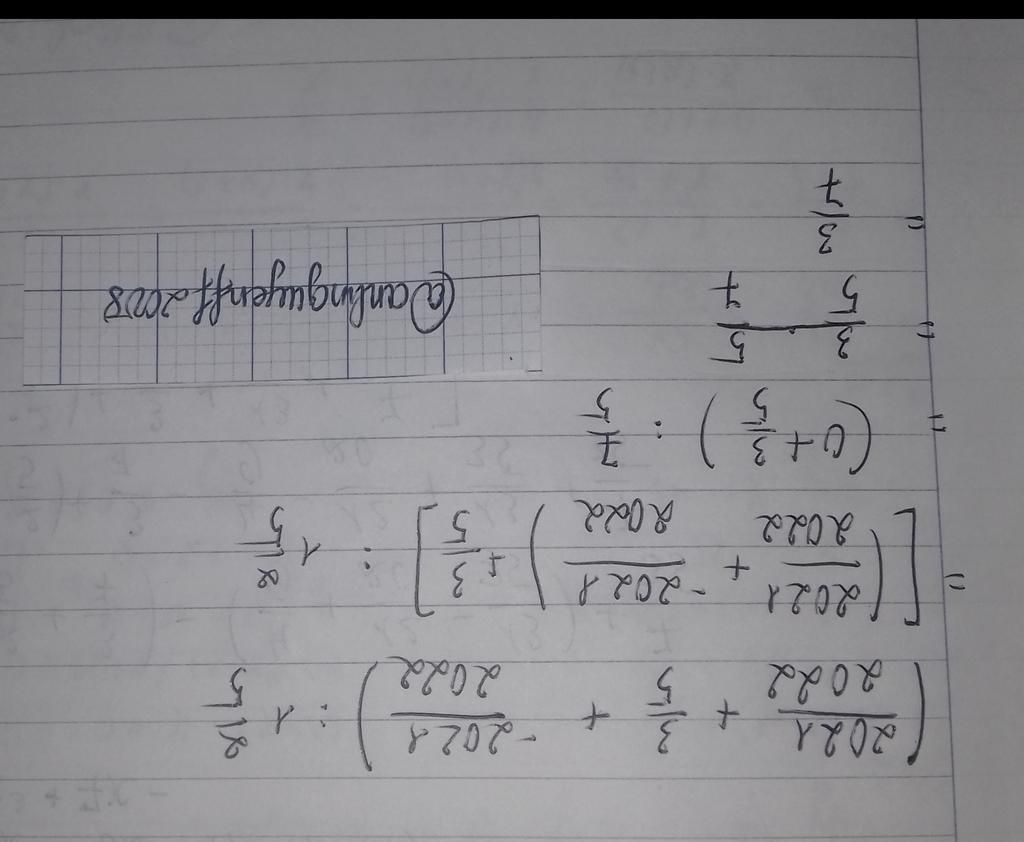 (2021/2022 + 3/5 + -2021/2022) : 1 2/5
= [(2021/2022 + -2021/2022) + 3/5] : 1 2/5
= (0 + 3/5) : 7/5
= 3/5 . 5/7
= 3/7
@anhnguyenff2008